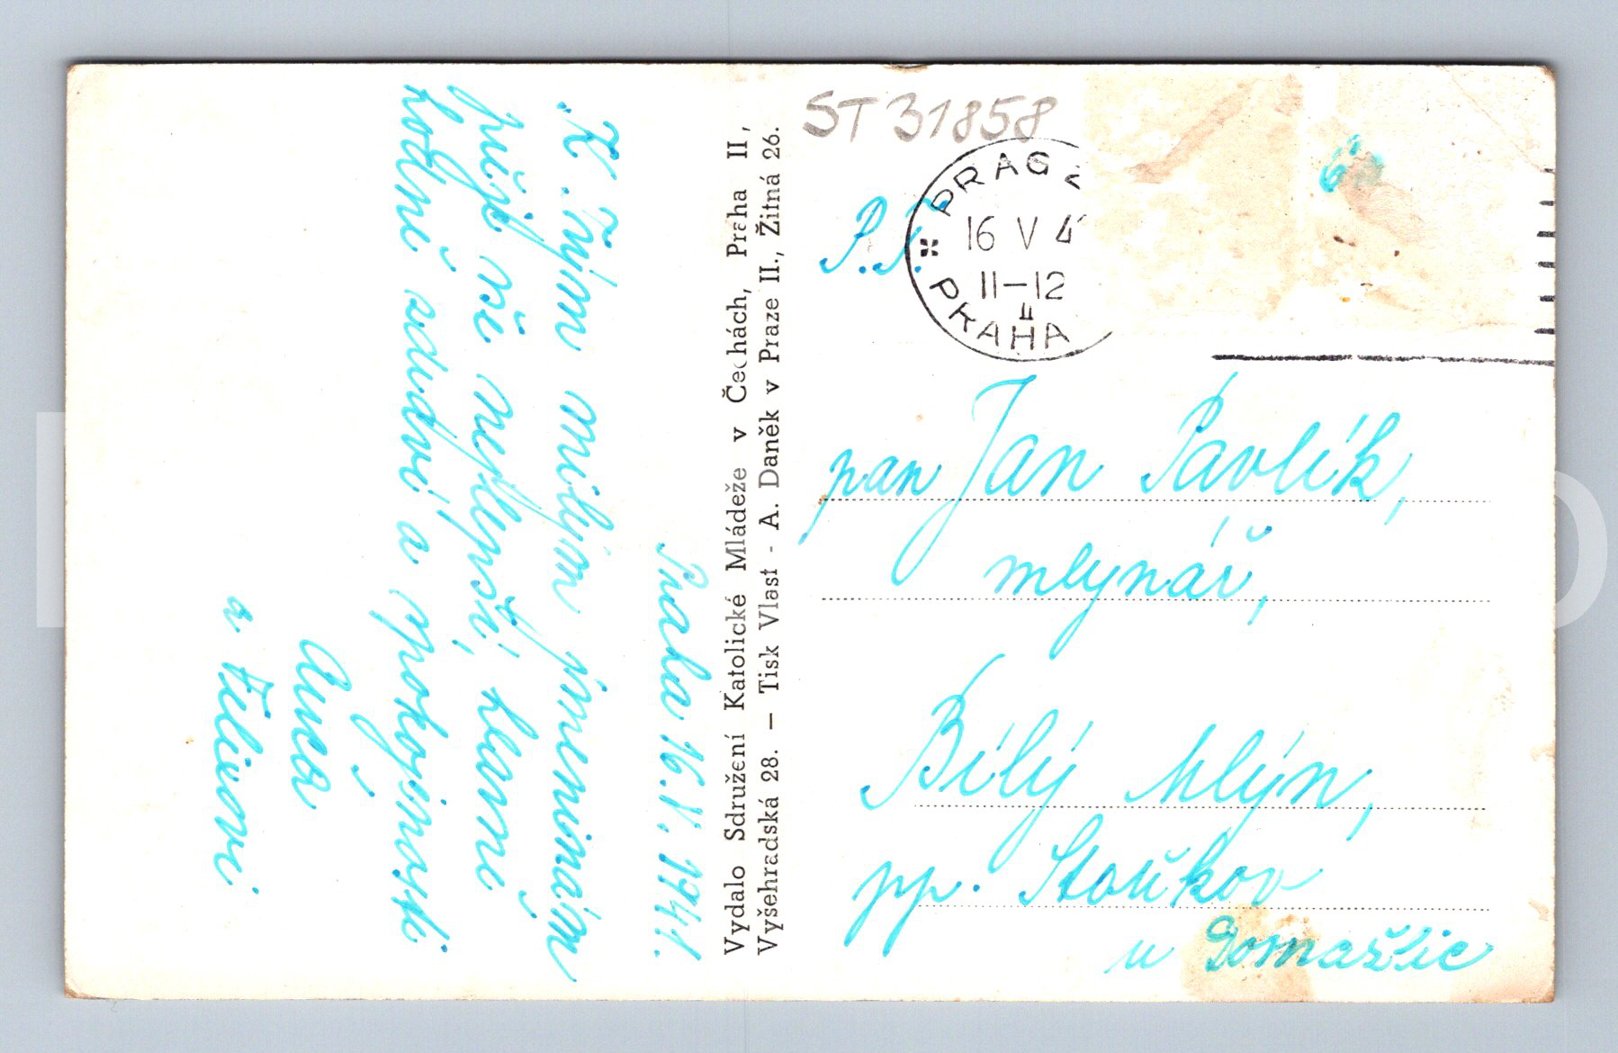 ST 31858
PRAG
16 V 4
11-12
PRAHA
P.T.
pan Jan Pavlík,
mlynář,
Bílý Mlýn,
pp. Staňkov
u Domažlic
Vydalo Sdružení Katolické Mládeže v Čechách, Praha II,
Vyšehradská 28. — Tisk Vlast - A. Daněk v Praze II., Žitná 26.
Praha 16.V. 1941.
K Tvým milým jmeninám
přeji vše nejlepší, hlavně
hodně zdraví a spokojenosti
Anča
a